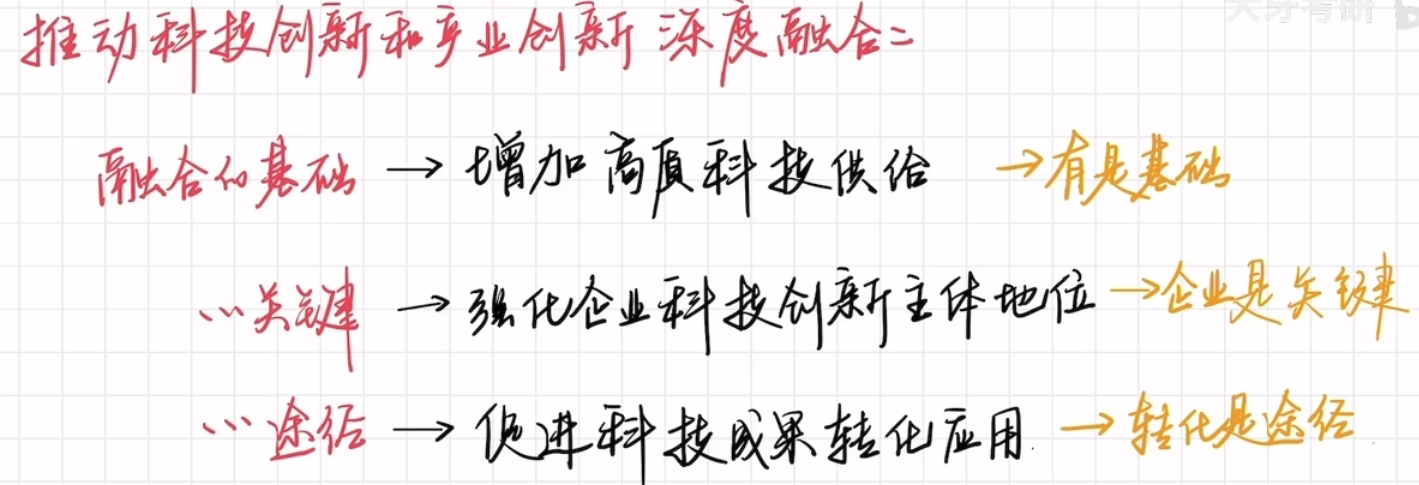 大牙考研
推动科技创新和产业创新深度融合：
融合的基础 → 增加高质科技供给 → 有是基础
…关键 → 强化企业科技创新主体地位 → 企业是关键
…途径 → 促进科技成果转化应用 → 转化是途径